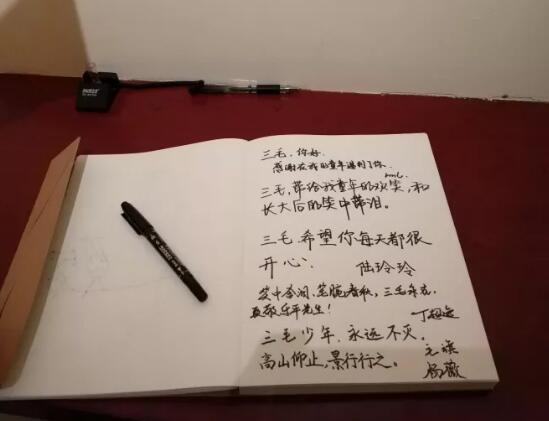 三毛,你好.
感谢在我的童年遇到了你.
三毛,带给我童年的欢笑,和
长大后的笑中带泪。
三毛.希望你每天都很
开心! 陆玲玲
笑中含泪,笔腕春秋,三毛永在
乐平先生!
三毛少年,永远不灭。
高山仰止,景行行之。
杨薇